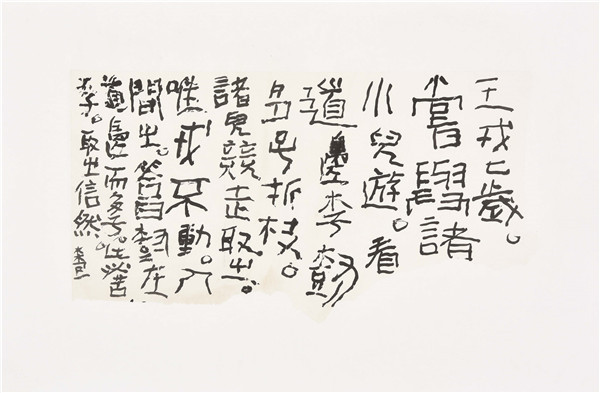 王戎七歲。
嘗與諸
小兒遊。看
道邊李樹
多子折枝。
諸兒競走取之。
唯戎不動。人
問之。答曰樹在
道邊而多子。此必苦
李。取之信然。